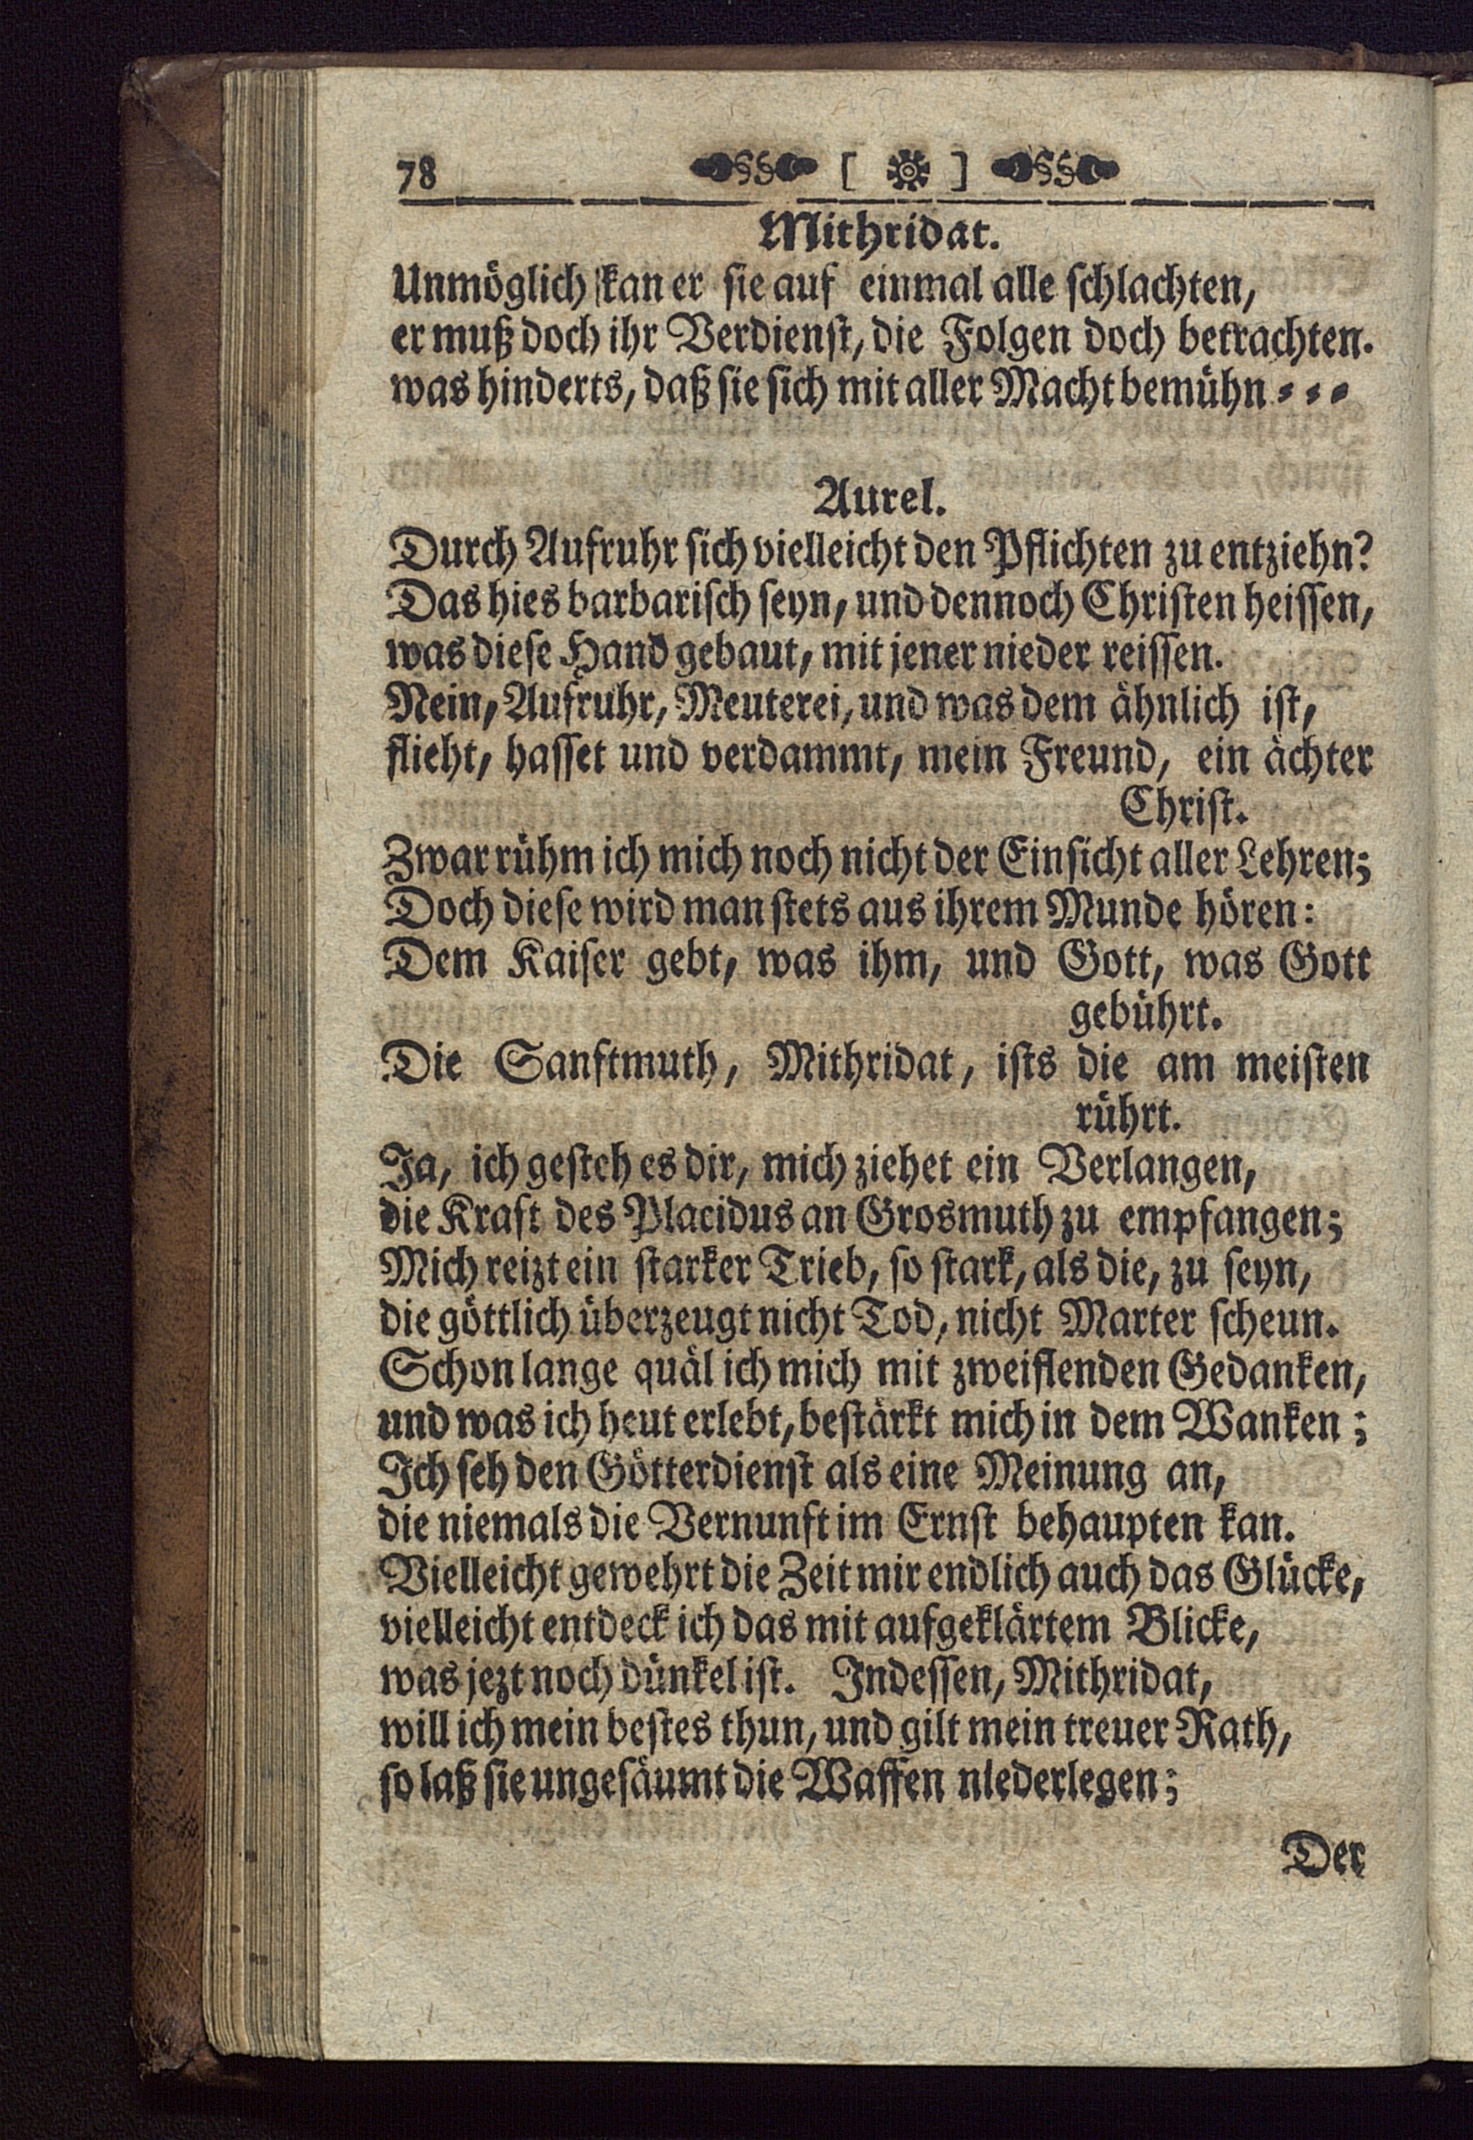 78 [ ]
Mithridat.
Unmöglich kan er sie auf einmal alle schlachten,
er muß doch ihr Verdienst, die Folgen doch betrachten.
was hinderts, daß sie sich mit aller Macht bemühn - - -
Aurel.
Durch Aufruhr sich vielleicht den Pflichten zu entziehn?
Das hies barbarisch seyn, und dennoch Christen heissen,
was diese Hand gebaut, mit jener nieder reissen.
Nein, Aufruhr, Meuterei, und was dem ähnlich ist,
flieht, hasset und verdammt, mein Freund, ein ächter
Christ.
Zwar rühm ich mich noch nicht der Einsicht aller Lehren;
Doch diese wird man stets aus ihrem Munde hören:
Dem Kaiser gebt, was ihm, und Gott, was Gott
gebührt.
Die Sanftmuth, Mithridat, ists die am meisten
rührt.
Ja, ich gesteh es dir, mich ziehet ein Verlangen,
die Kraft des Placidus an Grosmuth zu empfangen;
Mich reizt ein starker Trieb, so stark, als die, zu seyn,
die göttlich überzeugt nicht Tod, nicht Marter scheun.
Schon lange quäl ich mich mit zweiflenden Gedanken,
und was ich heut erlebt, bestärkt mich in dem Wanken;
Ich seh den Götterdienst als eine Meinung an,
die niemals die Vernunft im Ernst behaupten kan.
Vielleicht gewehrt die Zeit mir endlich auch das Glücke,
vielleicht entdeck ich das mit aufgeklärtem Blicke,
was jezt noch dünkel ist. Indessen, Mithridat,
will ich mein bestes thun, und gilt mein treuer Rath,
so laß sie ungesäumt die Waffen niederlegen;
Der